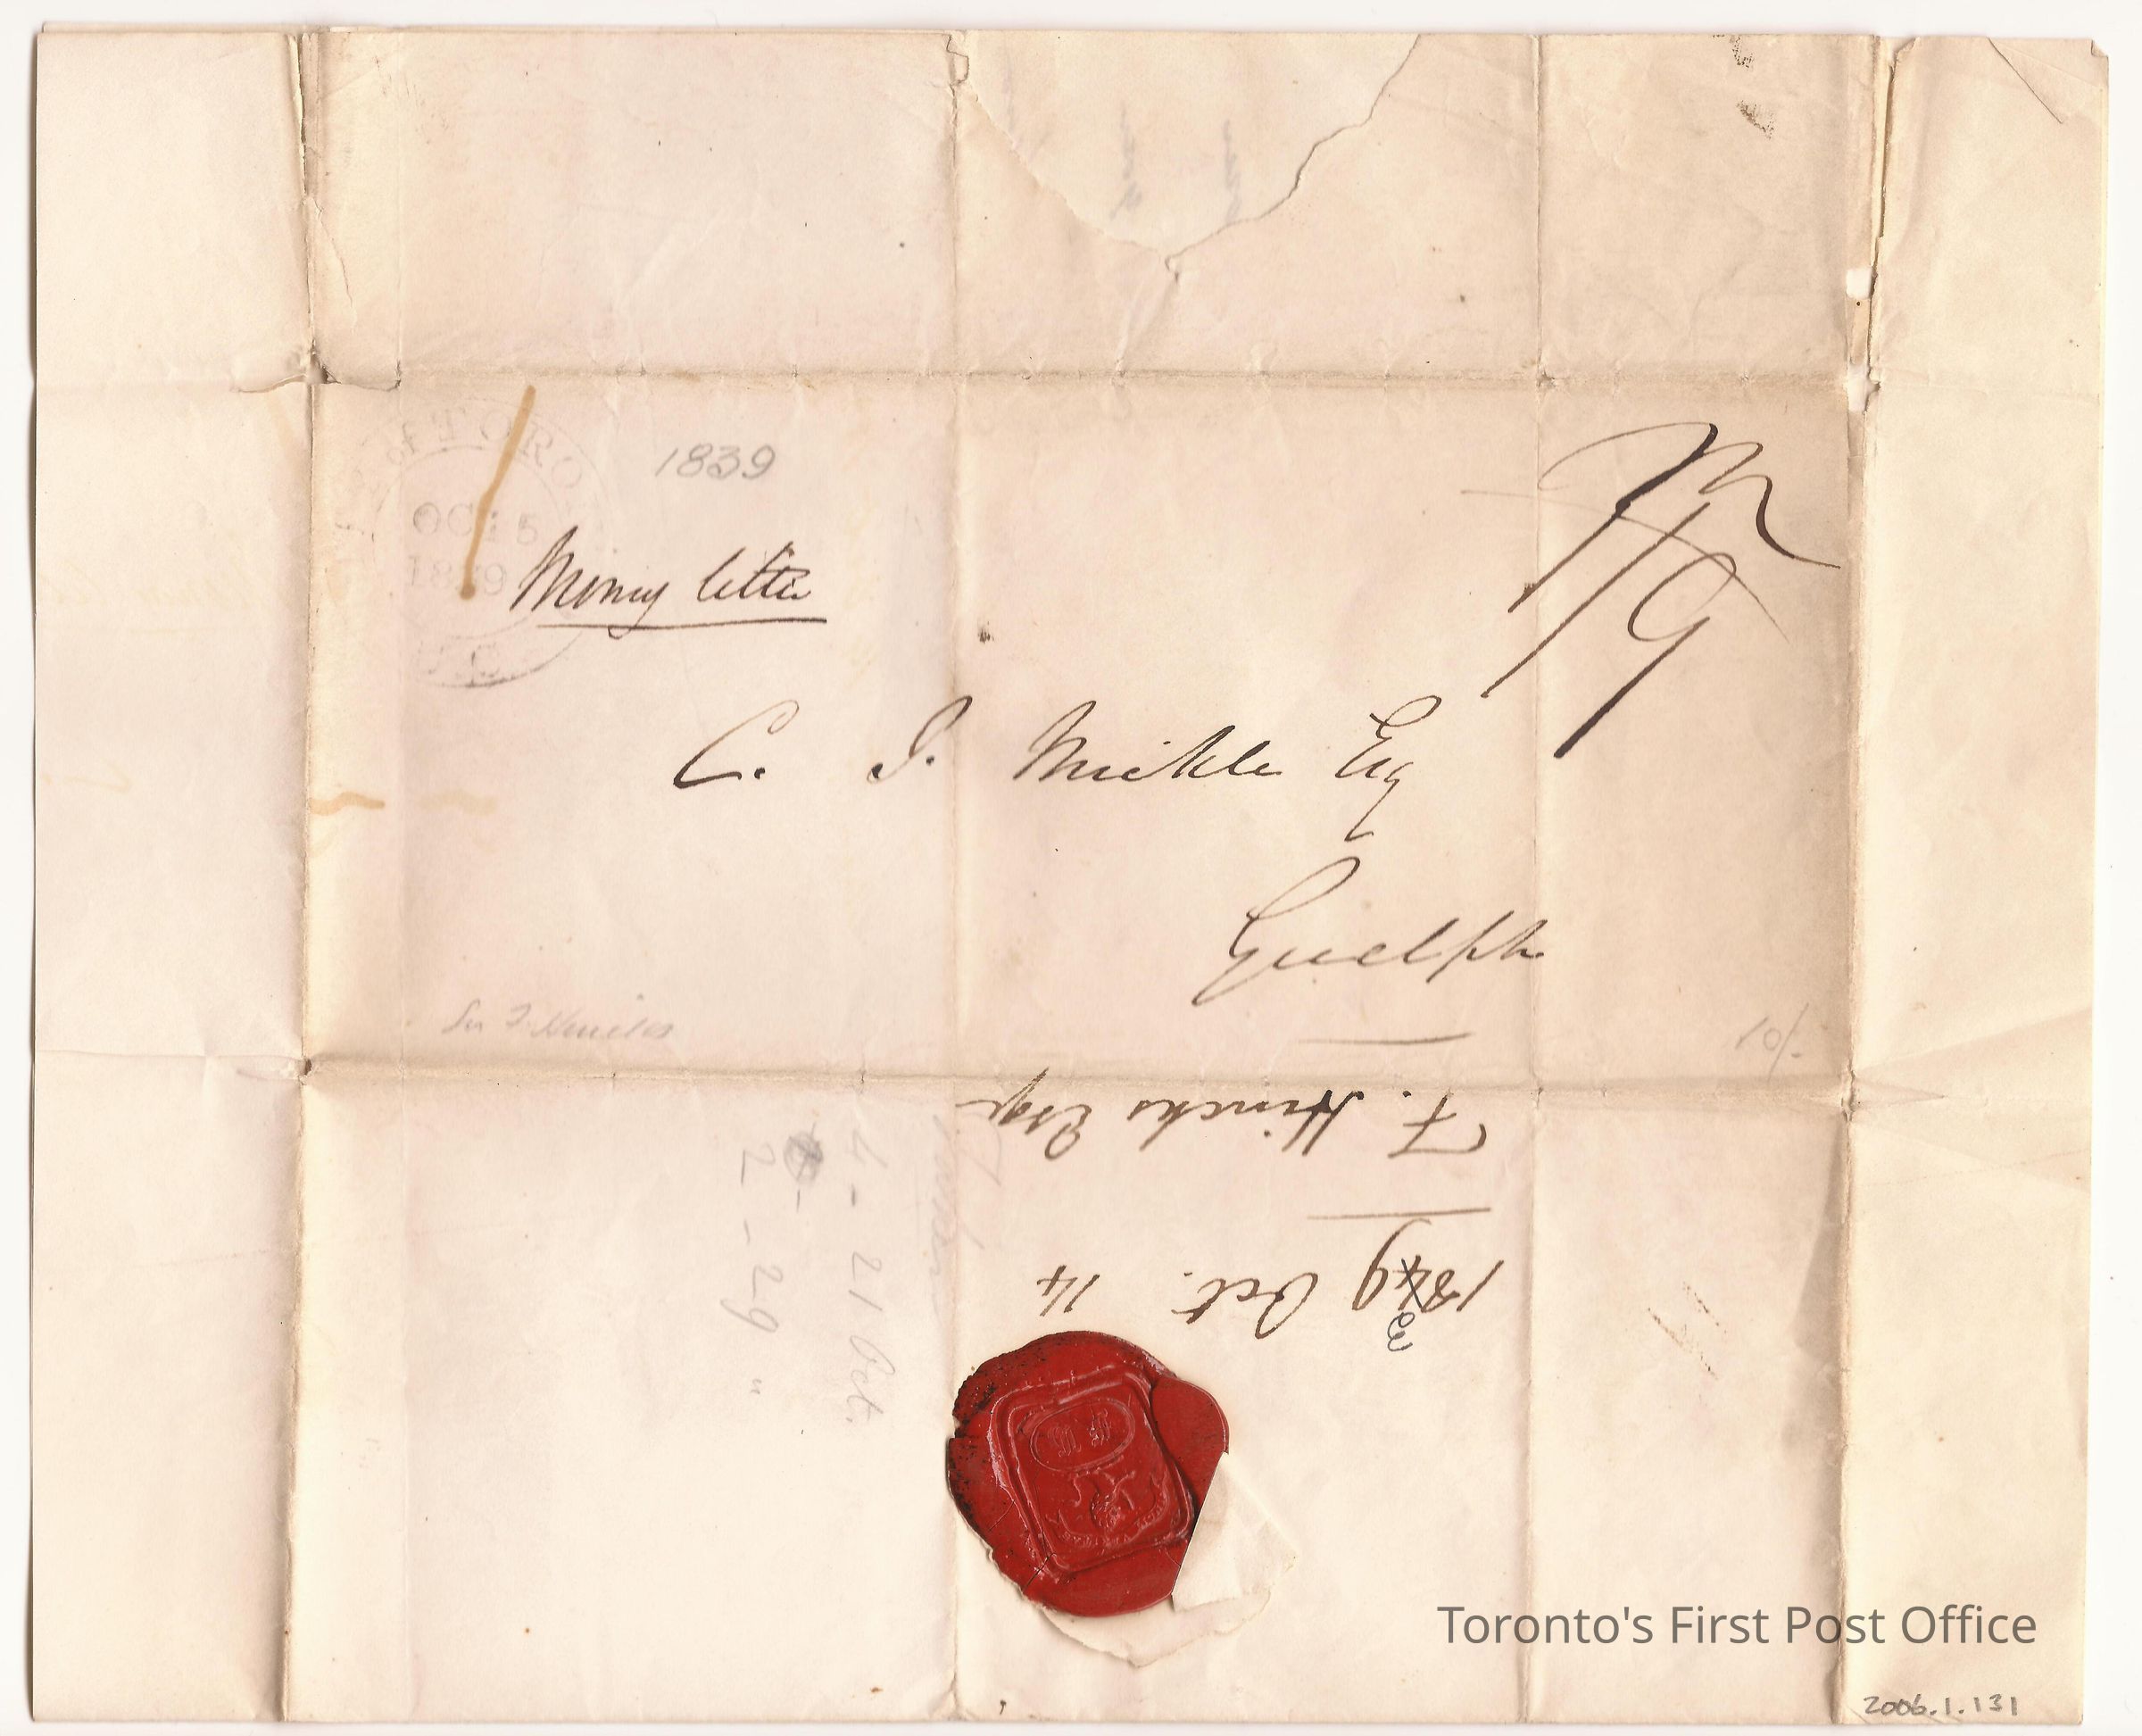 of TORO
OCT 15
1839
U.C.
1839
Money letter
C. J. Mickle Esq
Guelph
10/-
F. Hincks Esqr
1849 Oct. 14
3
4 - 21 Oct.
2 - 29 "
Toronto's First Post Office
2006.1.131